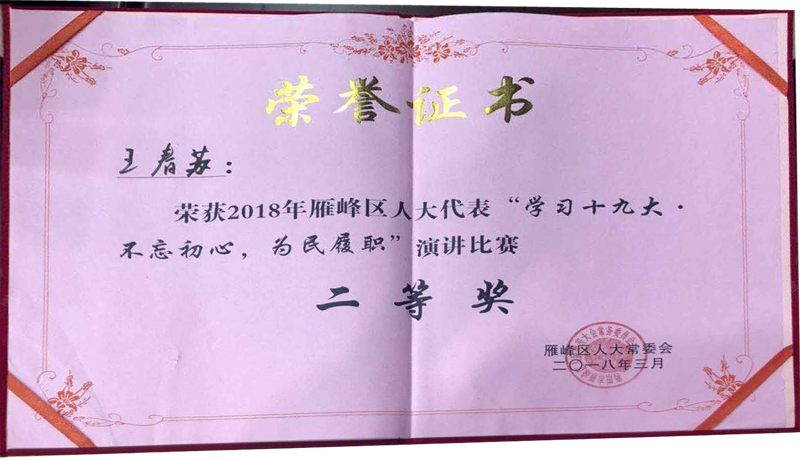 荣誉证书
王春苏：
荣获2018年雁峰区人大代表“学习十九大·
不忘初心，为民履职”演讲比赛
二等奖
雁峰区人大常委会
二〇一八年三月